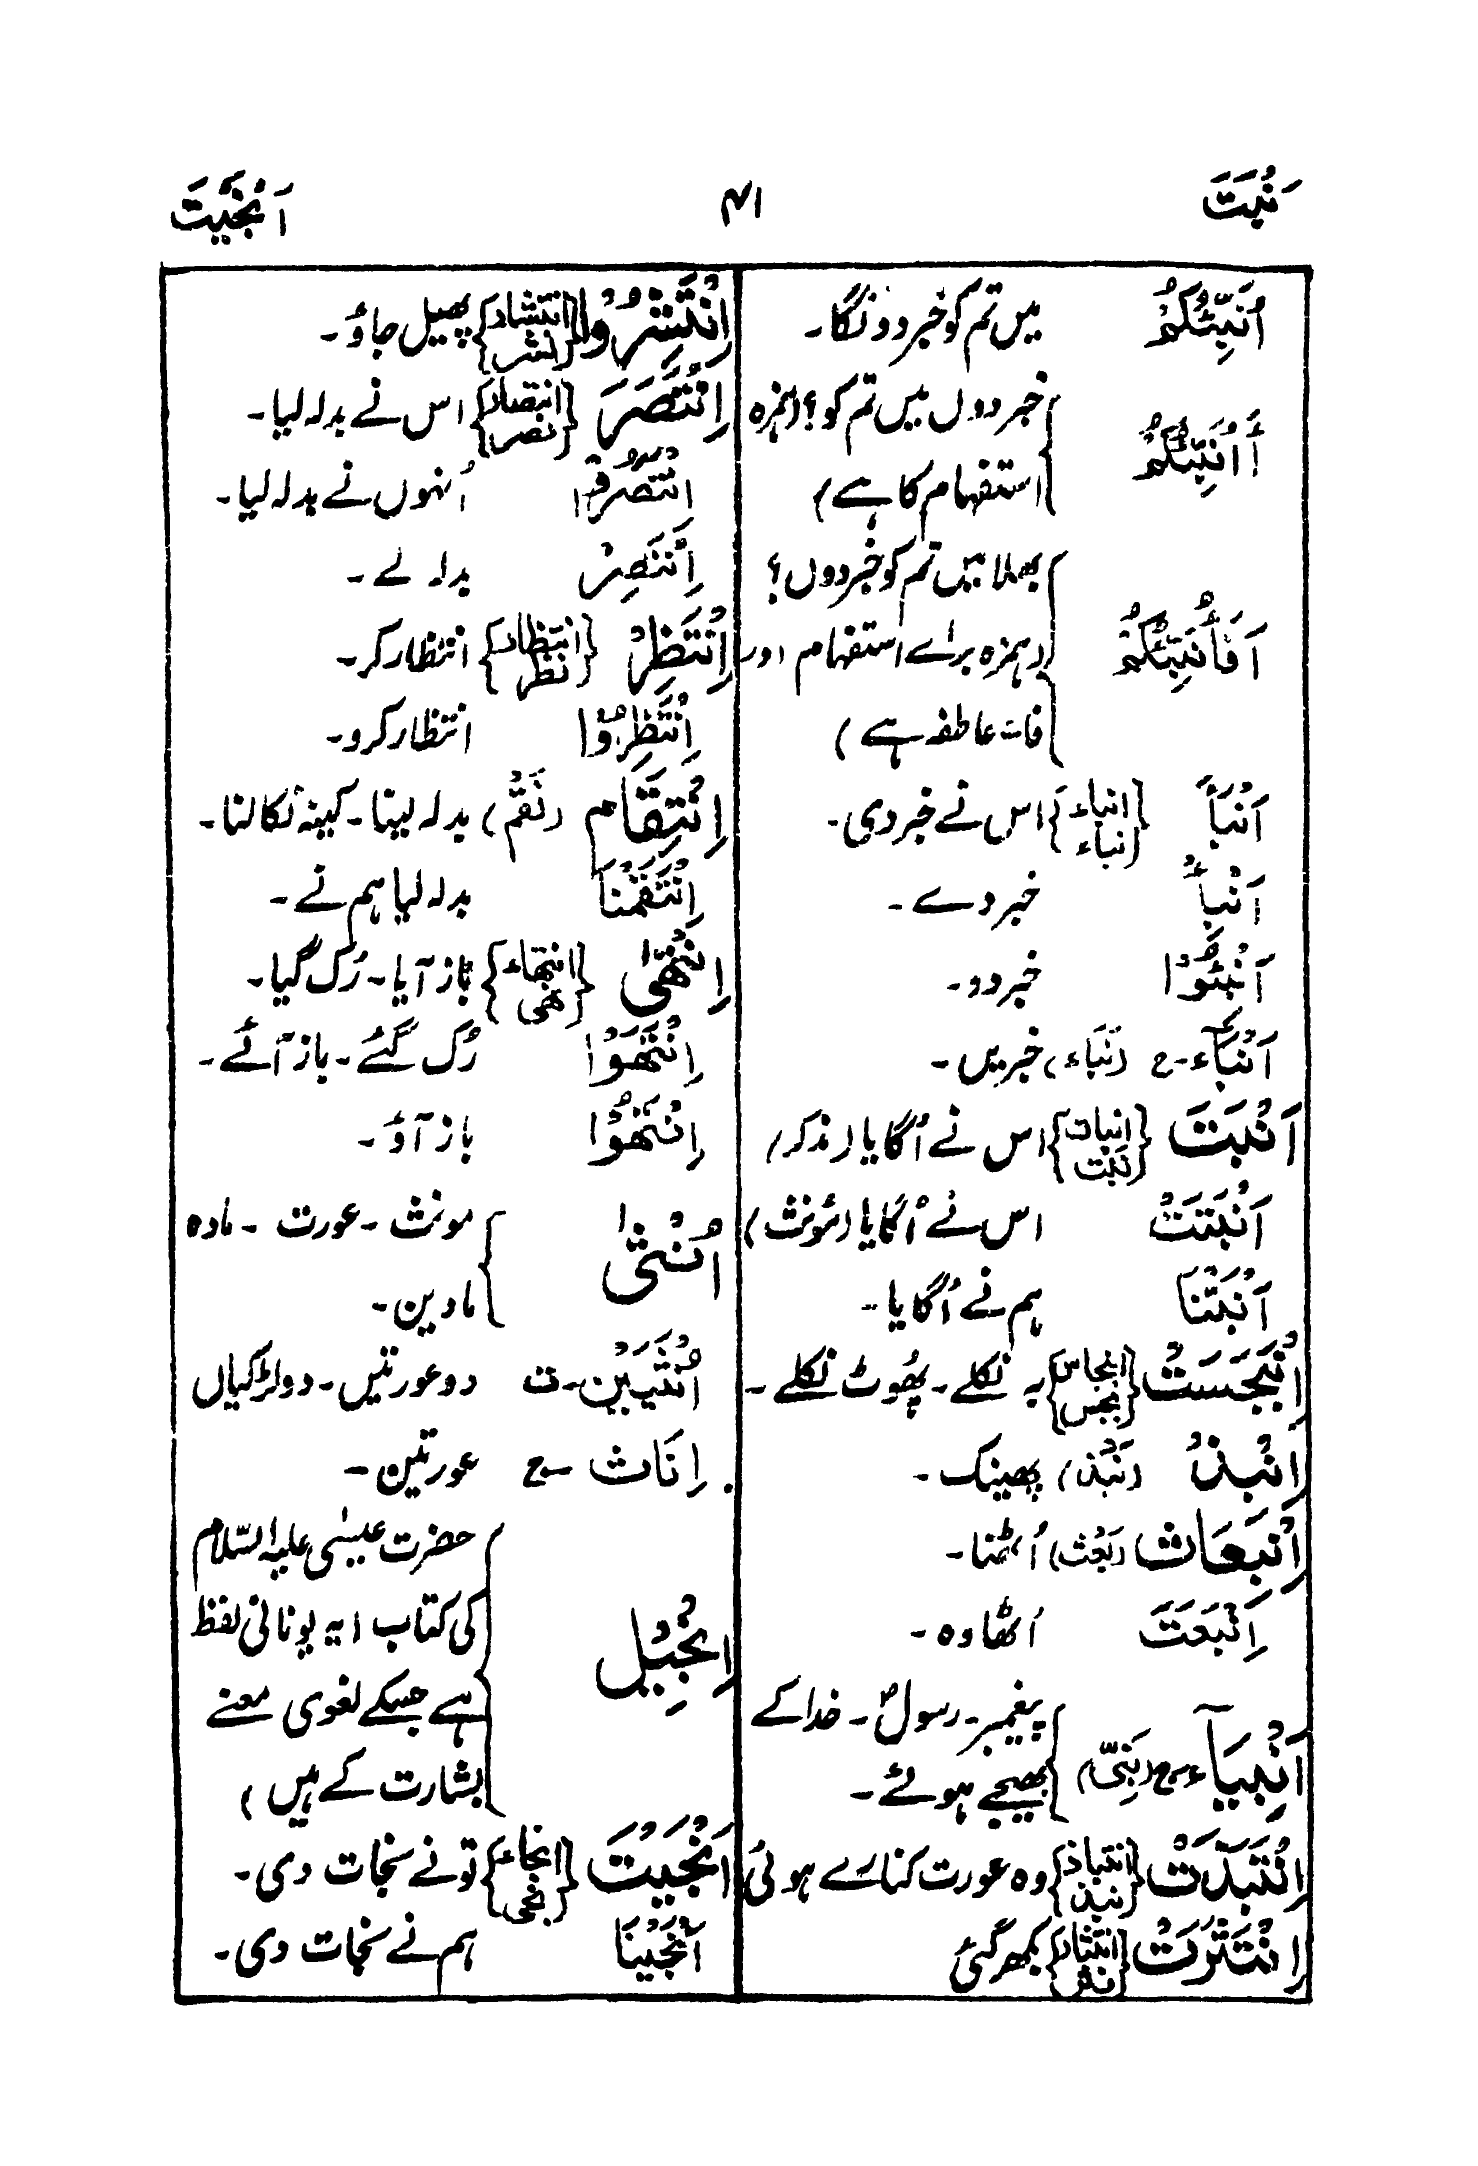 نُبِتَ
۴۱
اَنْجَيْتَ
اُنَبِّئُكُمْ میں تم کو خبر دونگا۔
أَاُنَبِّئُكُمْ خبر دوں میں تم کو؟ (ہمزہ
استفہام کا ہے)
اَفَأُنَبِّئُكُمْ بھلا میں تم کو خبر دوں؟
(ہمزہ برائے استفہام اور
فاء عاطفہ ہے)
اَنْبَأَ {انباء نباء} اس نے خبر دی۔
اَنْبِأْ خبر دے۔
اَنْبِئُوْا خبر دو۔
اَنْبَآء۔ج (نَبَاء) خبریں۔
اَنْبَتَ {انبات نبت} اس نے اُگایا (مذکر)
اَنْبَتَتْ اس نے اُگایا (مؤنث)
اَنْبَتْنَا ہم نے اُگایا۔
اِنْبَجَسَتْ {انبجاس بجس} بہ نکلے۔ پھوٹ نکلے۔
اِنْبِذْ (نَبْذ) پھینک۔
اِنْبِعَاث (بَعْث) اُٹھنا۔
اِنْبَعَثَ اُٹھا وہ۔
اَنْبِيَآء۔ج (نَبِیّ) پیغمبر۔ رسولؐ۔ خدا کے
بھیجے ہوئے۔
اِنْتَبَذَتْ {انتباذ نبذ} وہ عورت کنارے ہوئی
اِنْتَثَرَتْ {انتثار نثر} بکھر گئی
اِنْتَشِرُوْا {انتشار نشر} پھیل جاؤ۔
اِنْتَصَرَ {انتصار نصر} اس نے بدلہ لیا۔
اِنْتَصَرُوْا اُنہوں نے بدلہ لیا۔
اِنْتَصِرْ بدلہ لے۔
اِنْتَظِرْ {انتظار نظر} انتظار کر۔
اِنْتَظِرُوْا انتظار کرو۔
اِنْتِقَام (نَقْم) بدلہ لینا۔ کینہ نکالنا۔
اِنْتَقَمْنَا بدلہ لیا ہم نے۔
اِنْتَهٰى {انتہاء نھی} باز آیا۔ رُک گیا۔
اِنْتَهَوْا رُک گئے۔ باز آئے۔
اِنْتَهُوْا باز آؤ۔
اُنْثٰى مونث۔ عورت۔ مادہ
مادین۔
اُنْثَيَيْنِ۔ت دو عورتیں۔ دو لڑکیاں
اِنَاث۔ج عورتیں۔
اِنْجِيْل حضرت عیسٰی علیہ السّلام
کی کتاب (یہ یونانی لفظ
ہے جسکے لغوی معنے
بشارت کے ہیں)
اَنْجَيْتَ {انجاء نجی} تو نے نجات دی۔
اَنْجَيْنَا ہم نے نجات دی۔